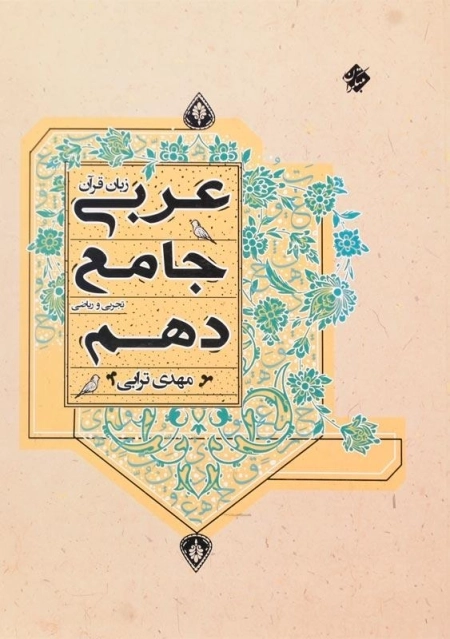 مبتکران
زبان قرآن
عربی
جامع
تجربی و ریاضی
دهم
مهدی ترابی